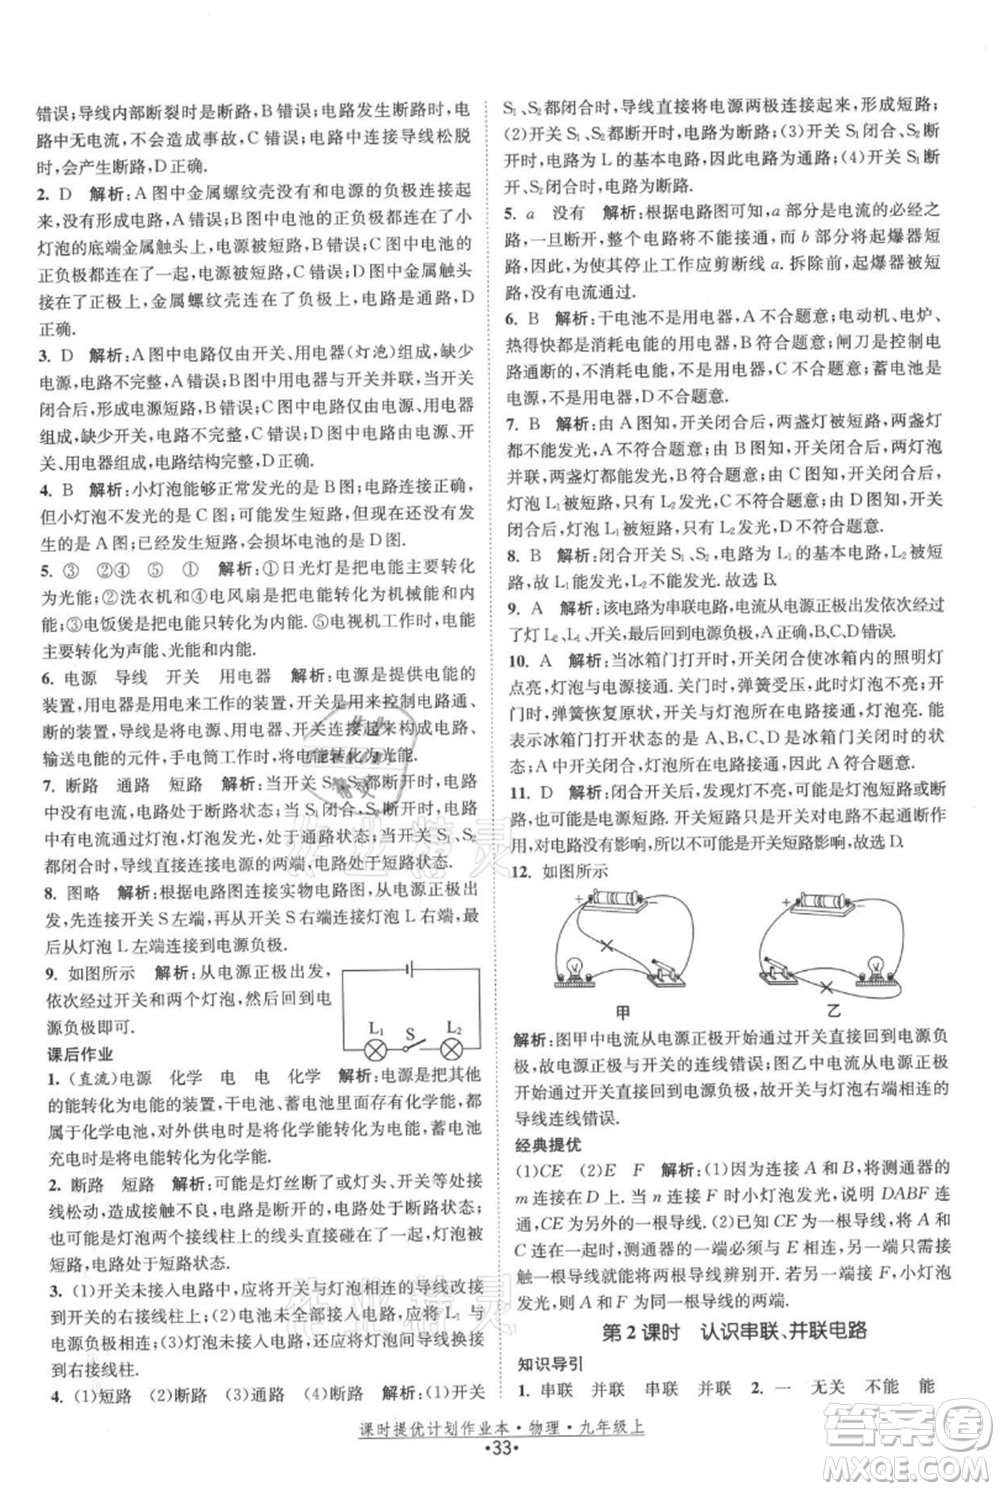 错误;导线内部断裂时是断路,B错误;电路发生断路时,电
路中无电流,不会造成事故,C错误;电路中连接导线松脱
时,会产生断路,D正确.
2. D 解析:A图中金属螺纹壳没有和电源的负极连接起来,
没有形成电路,A错误;B图中电池的正负极都连接在了小
灯泡的底端金属触头上,电源被短路,B错误;C图中电池的
正负极都连在了一起,电源被短路,C错误;D图中金属触头
接在了正极上,金属螺纹壳在负极上,电路是通路,D
正确.
3. D 解析:A图中电路仅由开关、用电器(灯泡)组成,缺少
电源,电路不完整,A错误;B图中用电器与开关并联,当开关
闭合后,形成短路,B错误;C图中电路仅由电源、用电器组
成,缺少开关,电路不完整,C错误;D图中电路由电源、开
关、用电器组成,电路结构完整,D正确.
4. B 解析:小灯泡能够正常发光的是B图;开关已经闭合,
但小灯泡不发光的是C图;可能发生短路,但现在还没有发
生的是A图;已经发生短路,会损坏电池的是D图.
5. ③ ②④ ⑤ ① 解析:①日光灯是把电能主要转化
为光能;②洗衣机和④电风扇是把电能主要转化为机械
能;③电饭煲是把电能只转化为内能.⑤电视机把电能主要
转化为声能、光能和内能.
6. 电源 导线 开关 用电器 解析:电源是提供电能的
装置,用电器是用电来工作的装置,开关是控制电路通、
断的装置,导线是将电源、用电器、开关连接起来构成电路、
输送电能的元件,手电筒工作时,将电能转化为光能.
7. 断路 通路 短路 解析:当开关S、S₁都断开时,电路
中没有电流,电路处于断路状态;当S闭合、S₁断开时,
电路构成通路,灯泡发光,电路处于通路状态;当开关S、S₁
都闭合时,导线直接连接电源的两端,电路处于短路状态.
8. 图略 解析:根据电路图连接实物电路图,从电源正极出
发,先连接开关S左端,再从开关右端连接灯泡L右端,最
后从灯泡L左端连接到电源负极.
9. 如图所示 解析:从电源正极出发,
依次经过开关和两个灯泡,最后回到电
源负极即可.
L₁ S L₂
课后作业
1. (直流)电源 化学 电 电 化学 解析:电源是把其他
的能转化为电能的装置,干电池、蓄电池、纽扣电池等,都
属于化学电池,对外供电时是化学能转化为电能,给蓄电池
充电时是将电能转化为化学能.
2. 断路 短路 解析:可能是灯丝断了或灯头、开关等处接
线松动,造成接触不良,导致电路是断开的,处于断路状态.
可能是灯座的两个接线柱上的线头直接相碰了,使电路
被短路,处于短路状态.
3. (1)开关未接入电路中,应将开关与灯泡相连的导线改接
到开关的右接线柱上;(2)电池未全部接入电路中,应将与
灯泡L₁左接线柱相连的导线改接到电池组的正极
上;(3)右边灯泡未接入电路中,应将导线接到右边灯泡的
右接线柱.
4. (1)短路 (2)断路 (3)通路 (4)断路 解析:(1)开关
S₁、S₂都闭合时,导线直接将电源的两端连接起来,会短路;
(2)开关S₁、S₂都断开时,电路为断路;(3)开关S₁闭合、S₂断
开时,电路为L的基本电路,因此电路为通路;(4)开关S₁
断开、S₂闭合时,电路为断路.
5. a 没有 解析:根据电路图可知,a部分是电流的必经之
路,若断开,整个电路将不能接通,而b部分与起爆器形成
并联,为使其停止工作应剪断线a.拆除前,起爆器处是短路,
没有电流通过.
6. B 解析:干电池不是用电器,A不合题意;电动机、电炉、
热得快都是消耗电能的用电器,B符合题意;闸刀是控制电
路通断的元件,不属于用电器,C不合题意;蓄电池是提供
电能的装置,不是用电器,D不合题意.
7. B 解析:由A图知,开关闭合后,两盏灯被短路,两盏灯
都不能发光,A不符合题意;由B图知,开关闭合后,两灯泡
并联,两盏灯都能发光,B符合题意;由C图知,开关闭合后,
灯泡L₁被短路,只有L₂发光,C不符合题意;由D图知,开关
闭合后,灯泡L₂被短路,只有L₁发光,D不符合题意.
8. B 解析:闭合开关S后,电路为L₁的基本电路,L₂被短
路,故L₁能发光,L₂不能发光.故选B.
9. A 解析:该电路为串联电路,电流从电源正极出发依次经过
了灯L₂、L₁和开关,最后回到电源负极,A正确,B、C、D错误.
10. A 解析:当冰箱门打开时,开关应使冰箱内的照明灯
点亮,灯泡亮;冰箱门关闭时,弹簧受压,灯泡不亮;打开
时,弹簧恢复原状,开关闭合,灯泡所在电路通,灯泡亮.能
表示冰箱门打开状态的是A、C,但A中灯泡和开关串联,
C中灯泡和开关并联,闭合时发生短路.故选A.
11. D 解析:开关闭合后,发现灯不亮,可能是灯泡短路或断
路,或者电路其他部分断路.开关短路只是不起控制作
用,对电路没有影响,所以不可能是开关短路,故选D.
12. 如图所示
甲 乙
解析:图甲中电流从电源正极开始通过开关直接回到电源负
极,是与电源正极和开关右端相连的导线错误;图乙中电流从电源正极
开始通过开关直接回到电源负极,是开关与灯泡右端相连的
导线连线错误.
经典提优
(1)CE (2)E F 解析:(1)因为连接A上,所以将测通器的
m连接在D上.当n连接F时小灯泡发光,说明DABF是
通的,CE为另外的一根导线.(2)已知CE为一根导线,则C、E
连在一起时;测通器的一端必须和E接触,若另一端接
触一根导线的两端则可以使灯泡发光.若另一端接F,小灯泡
发光,则B、F为同一根导线的两端.
第2课时 认识串联、并联电路
知识导引
1. 串联 并联 串联 并联 2. 一 无关 不能 能
课时提优计划作业本·物理·九年级上
·33·
答案圈
MXQE.COM
作业精灵